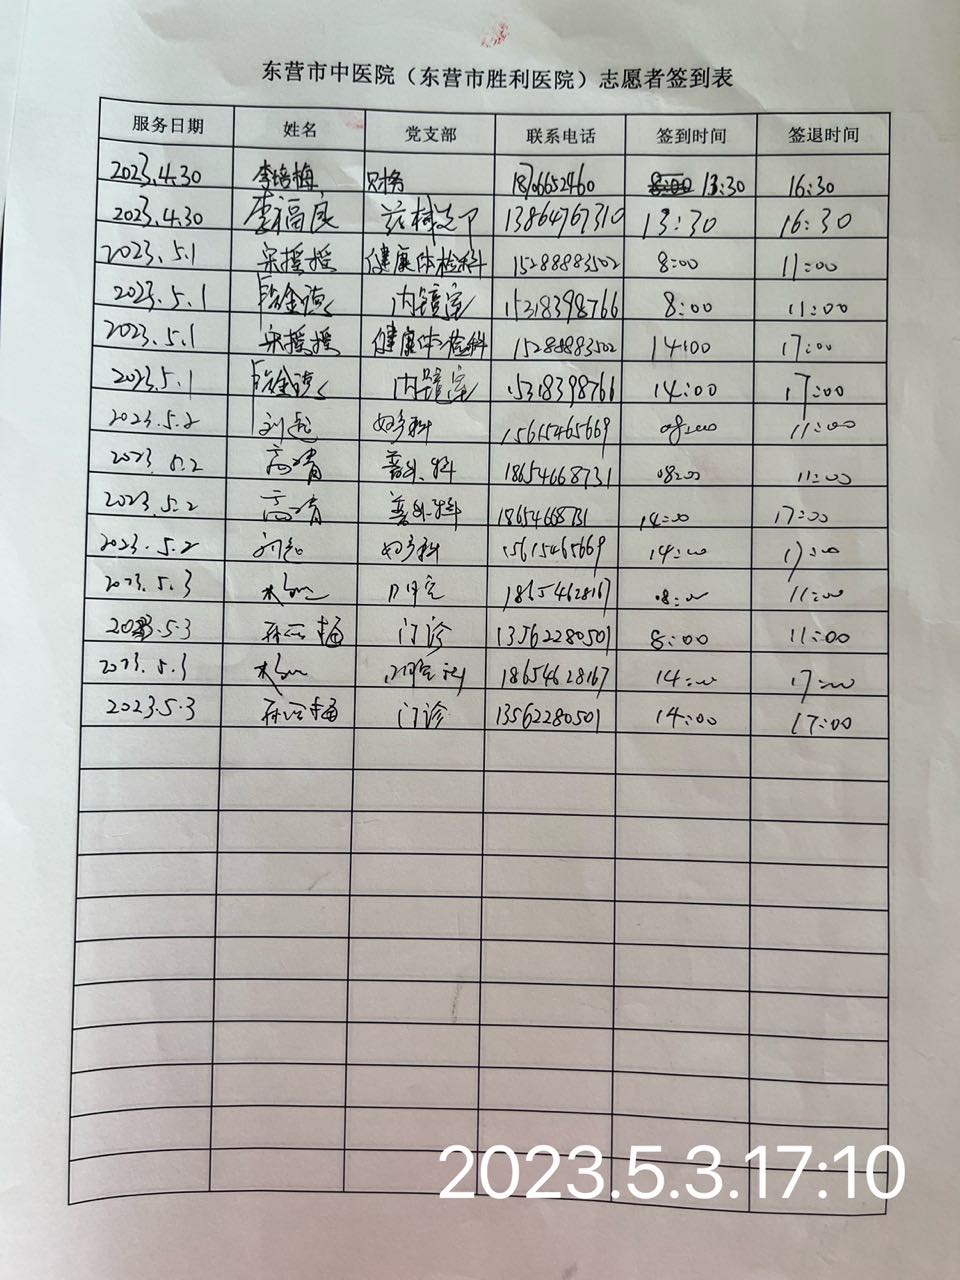 东营市中医院（东营市胜利医院）志愿者签到表
服务日期 姓名 党支部 联系电话 签到时间 签退时间
2023.4.30 李培梅 财务 18706652460 8:00 13:30 16:30
2023.4.30 李福良 13864767310 13:30 16:30
2023.5.1 宋援援 健康体检科 15288883502 8:00 11:00
2023.5.1 内镜室 15318398766 8:00 11:00
2023.5.1 宋援援 健康体检科 15288883502 14:00 17:00
2023.5.1 内镜室 15318398766 14:00 17:00
2023.5.2 15615465669 08:00 11:00
2023.5.2 高靖 普外科 18654668731 08:00 11:00
2023.5.2 高靖 普外科 18654668731 14:00 17:00
2023.5.2 15615465669 14:00 17:00
2023.5.3 18654628167 08:00 11:00
2023.5.3 门诊 13562280501 8:00 11:00
2023.5.3 18654628167 14:00 17:00
2023.5.3 门诊 13562280501 14:00 17:00
2023.5.3.17:10